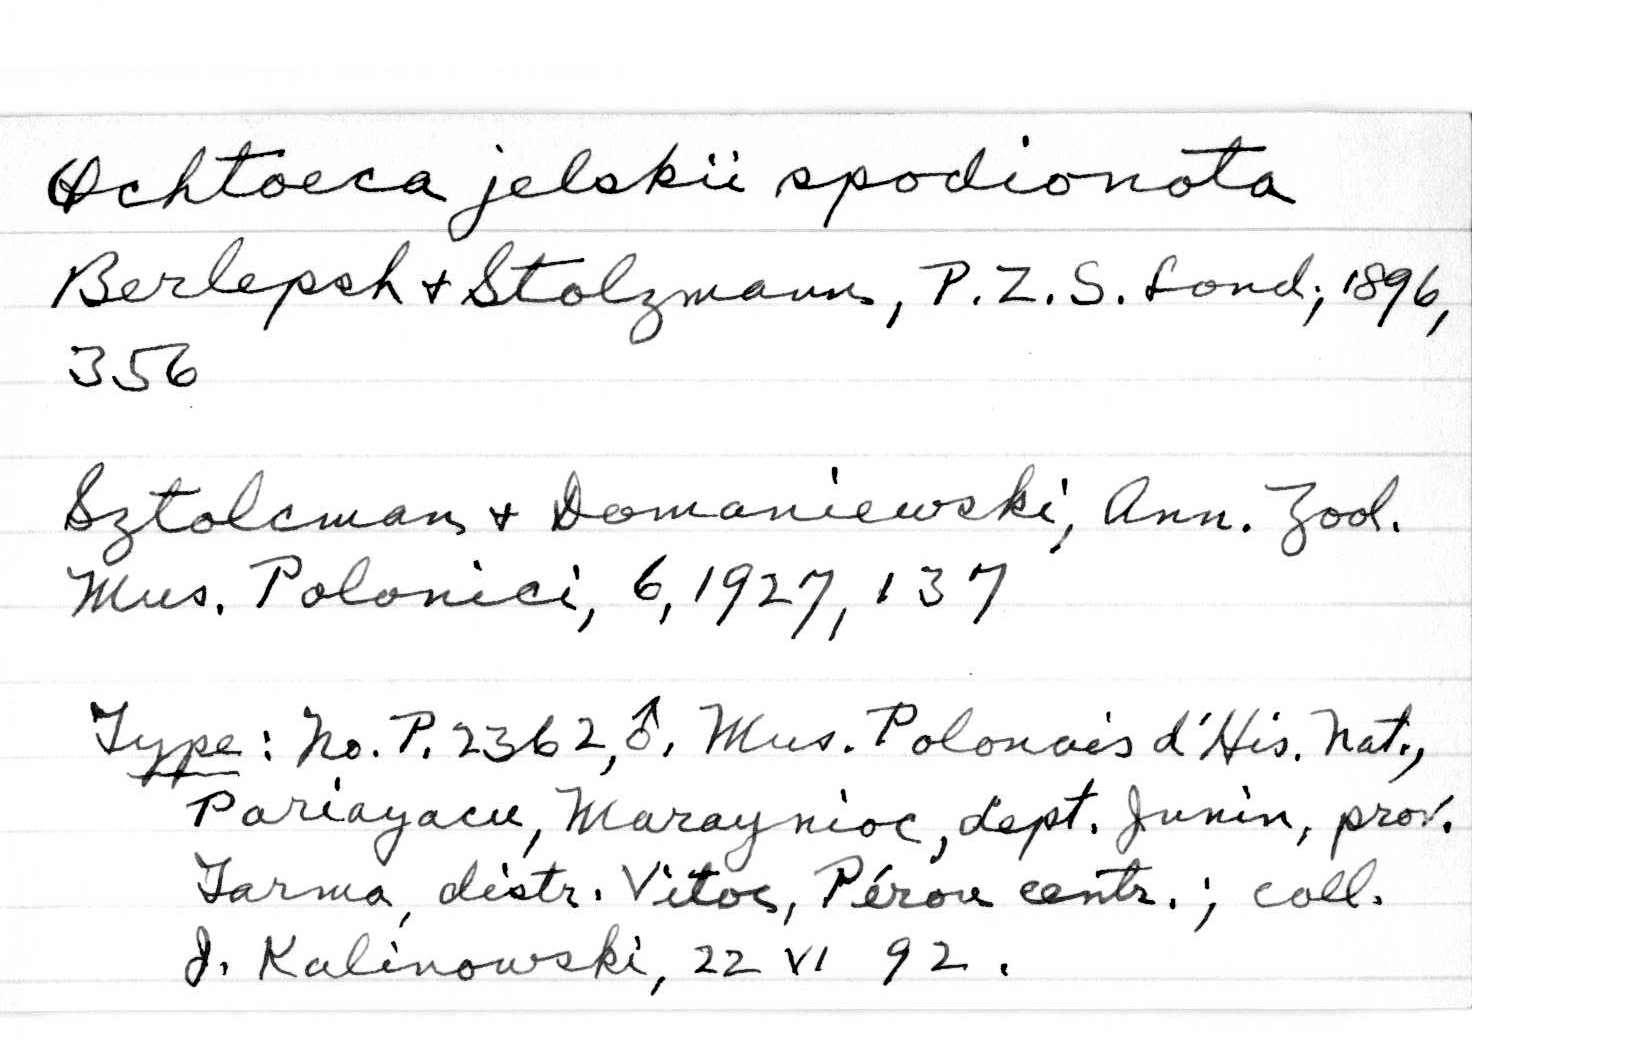 Ochtoeca jelskii spodionota
Berlepsh + Stolzmann, P.Z.S. Lond; 1896,
356
Sztolcman + Domaniewski, Ann. Zool.
Mus. Polonici, 6, 1927, 137
Type: No. P. 2362, ♂, Mus. Polonais d'His. Nat.,
Pariayacu, Maraynioc, dept. Junin, prov.
Tarma, distr. Vitoc, Pérou centr.; coll.
J. Kalinowski, 22 VI 92.